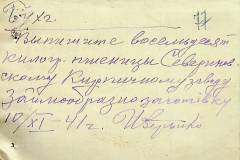 77
Выпишите восемьдесят
килогр. пшеницы Северинов-
скому Кирпичному заводу
Займообразно заготовку
10/XI - 41 г.